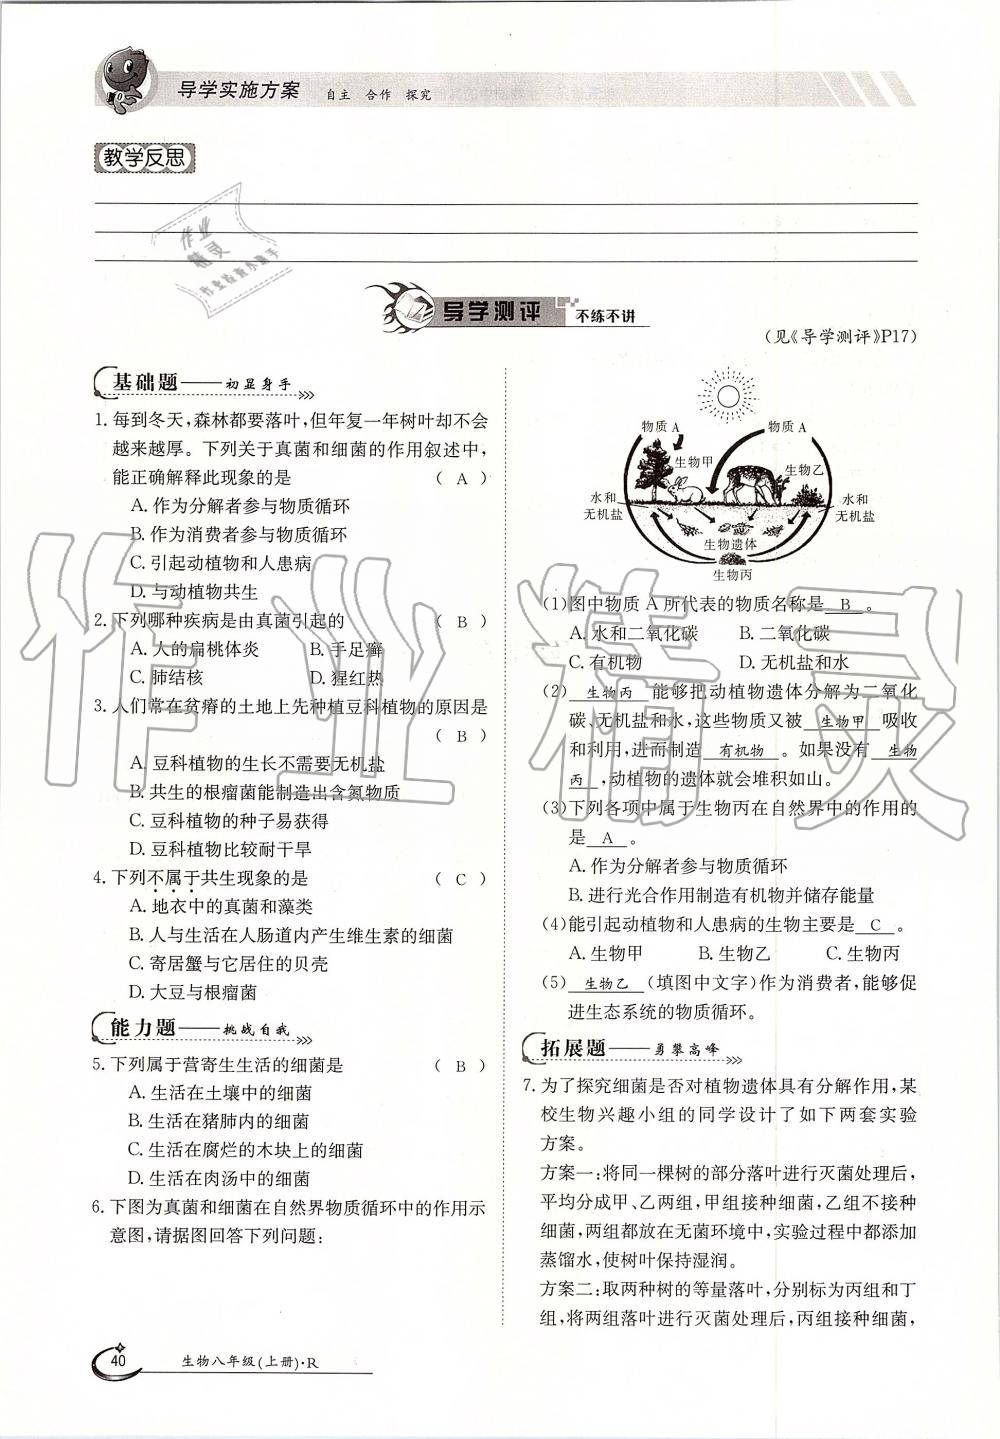 导学实施方案 自主 合作 探究
教学反思
导学测评 不练不讲
(见《导学测评》P17)
基础题——初显身手
1. 每到冬天,森林都要落叶,但年复一年树叶却不会
越来越厚。下列关于真菌和细菌的作用叙述中,
能正确解释此现象的是 ( A )
A. 作为分解者参与物质循环
B. 作为消费者参与物质循环
C. 引起动植物和人患病
D. 与动植物共生
2. 下列哪种疾病是由真菌引起的 ( B )
A. 人的扁桃体炎 B. 手足癣
C. 肺结核 D. 猩红热
3. 人们常在贫瘠的土地上先种植豆科植物的原因是
( B )
A. 豆科植物的生长不需要无机盐
B. 共生的根瘤菌能制造出含氮物质
C. 豆科植物的种子易获得
D. 豆科植物比较耐干旱
4. 下列不属于共生现象的是 ( C )
A. 地衣中的真菌和藻类
B. 人与生活在人肠道内产生维生素的细菌
C. 寄居蟹与它居住的贝壳
D. 大豆与根瘤菌
能力题——挑战自我
5. 下列属于营寄生生活的细菌是 ( B )
A. 生活在土壤中的细菌
B. 生活在猪肺内的细菌
C. 生活在腐烂的木块上的细菌
D. 生活在肉汤中的细菌
6. 下图为真菌和细菌在自然界物质循环中的作用示
意图,请据图回答下列问题:
物质A 物质A
生物甲 生物乙
水和
无机盐
水和
无机盐
生物遗体
生物丙
(1)图中物质 A 所代表的物质名称是 B 。
A. 水和二氧化碳 B. 二氧化碳
C. 有机物 D. 无机盐和水
(2) 生物丙 能够把动植物遗体分解为二氧化
碳、无机盐和水,这些物质又被 生物甲 吸收
和利用,进而制造 有机物 。如果没有 生物
丙 ,动植物的遗体就会堆积如山。
(3)下列各项中属于生物丙在自然界中的作用的
是 A 。
A. 作为分解者参与物质循环
B. 进行光合作用制造有机物并储存能量
(4)能引起动植物和人患病的生物主要是 C 。
A. 生物甲 B. 生物乙 C. 生物丙
(5) 生物乙 (填图中文字)作为消费者,能够促
进生态系统的物质循环。
拓展题——勇攀高峰
7. 为了探究细菌是否对植物遗体具有分解作用,某
校生物兴趣小组的同学设计了如下两套实验
方案。
方案一:将同一棵树的部分落叶进行灭菌处理后,
平均分成甲、乙两组,甲组接种细菌,乙组不接种
细菌,两组都放在无菌环境中,实验过程中都添加
蒸馏水,使树叶保持湿润。
方案二:取两种树的等量落叶,分别标为丙组和丁
组,将两组落叶进行灭菌处理后,丙组接种细菌,
40 生物八年级(上册)·R
作业精灵